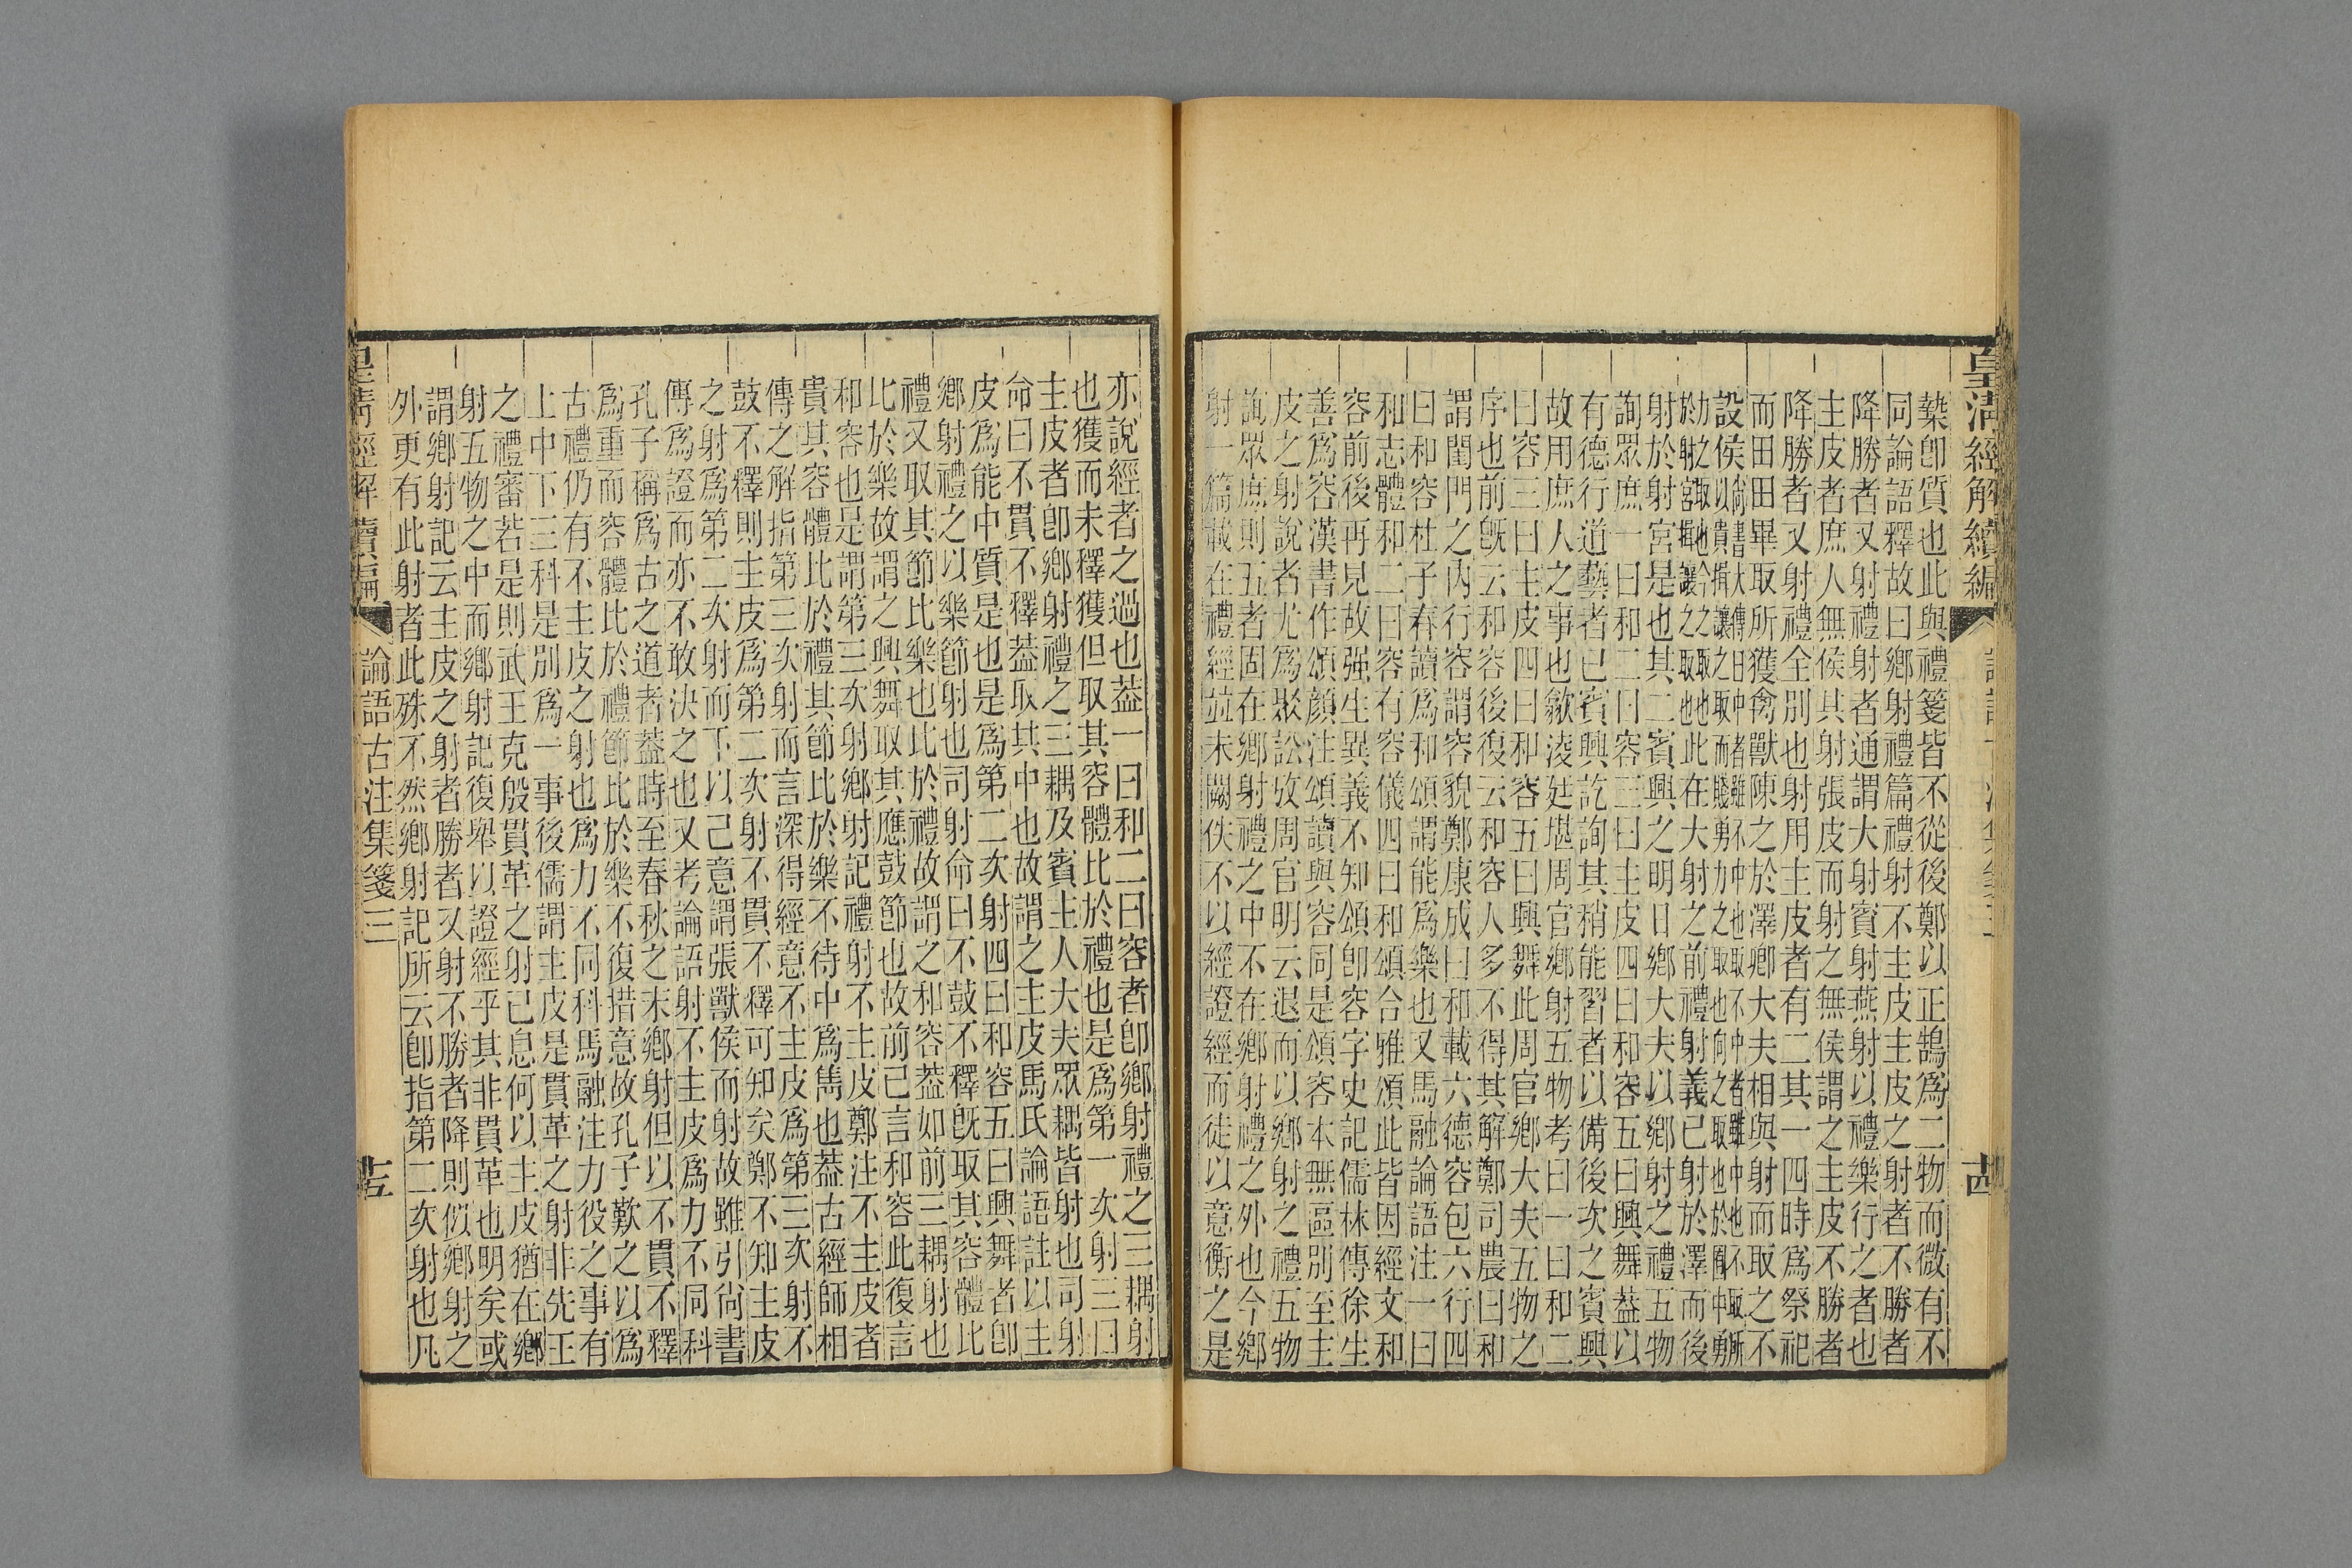 皇清經解續編
槷卽質也此與禮箋皆不從後鄭以正鵠爲二物而微有不
同論語釋故曰鄉射禮篇禮射不主皮主皮之射者不勝者
降勝者又射禮射者通謂大射賓射燕射以禮樂行之者也
主皮者庶人無侯其射張皮而射之無侯謂之主皮不勝者
降勝者又射禮全別也射用主皮者有二其一四時爲祭祀
而田田畢取所獲禽獸陳之於澤鄉大夫相與射而取之不
設侯以貴揖讓之取而賤勇力之取也向之取也於囿中勇
尚書大傳曰中者雖不中也取不中者雖中也不取所
力之取也今之取也
於射宮揖讓之取也此在大射之前禮射義已射於澤而後
射於射宮是也其二賓興之明日鄉大夫以鄉射之禮五物
詢眾庶一曰和二曰容三曰主皮四曰和容五曰興舞葢以
有德行道藝者已賓興訖詢其稍能習者以備後次之賓興
故用庶人之事也歙淩廷堪周官鄉射五物考曰一曰和二
曰容三曰主皮四曰和容五曰興舞此周官鄉大夫五物之
序也前旣云和容後復云和容人多不得其解鄭司農曰和
謂閨門之內行容謂容貌鄭康成曰和載六德容包六行四
曰和容杜子春讀爲和頌謂能爲樂也又馬融論語注一曰
和志體和二曰容有容儀四曰和頌合雅頌此皆因經文和
容前後再見故强生異義不知頌卽容字史記儒林傳徐生
善爲容漢書作頌顏注頌讀與容同是頌容本無區別至主
皮之射說者尤爲聚訟攷周官明云退而以鄉射之禮五物
詢眾庶則五者固在鄉射禮之中不在鄉射禮之外也今鄉
射一篇載在禮經並未闕佚不以經證經而徒以意衡之是
亦說經者之過也葢一曰和二曰容者卽鄉射禮之三耦射
也獲而未釋獲但取其容體比於禮也是爲第一次射三曰
主皮者卽鄉射禮之三耦及賓主人大夫眾耦皆射也司射
命曰不貫不釋葢取其中也故謂之主皮馬氏論語註以主
皮爲能中質是也是爲第二次射四曰和容五曰興舞者卽
鄉射禮之以樂節射也司射命曰不鼓不釋旣取其容體比
禮又取其節比樂也比於禮故謂之和容葢如前三耦射也
比於樂故謂之興舞取其應鼓節也故前已言和容此復言
和容也是謂第三次射鄉射記禮射不主皮鄭注不主皮者
貴其容體比於禮其節比於樂不待中爲雋也葢古經師相
傳之解指第三次射而言深得經意不主皮爲第三次射不
鼓不釋則主皮爲第二次射不貫不釋可知矣鄭不知主皮
之射爲第二次射而下以己意謂張獸侯而射故雖引尙書
傳爲證而亦不敢決之也又考論語射不主皮爲力不同科
孔子稱爲古之道者葢時至春秋之末鄉射但以不貫不釋
爲重而容體比於禮節比於樂不復措意故孔子歎之以爲
古禮仍有不主皮之射也爲力不同科馬融注力役之事有
上中下三科是別爲一事後儒謂主皮是貫革之射非先王
之禮審若是則武王克殷貫革之射已息何以主皮猶在鄉
射五物之中而鄉射記復舉以證經乎其非貫革也明矣或
謂鄉射記云主皮之射者勝者又射不勝者降則似鄉射之
外更有此射者此殊不然鄉射記所云卽指第二次射也凡
皇清經解續編
論語古注集箋三